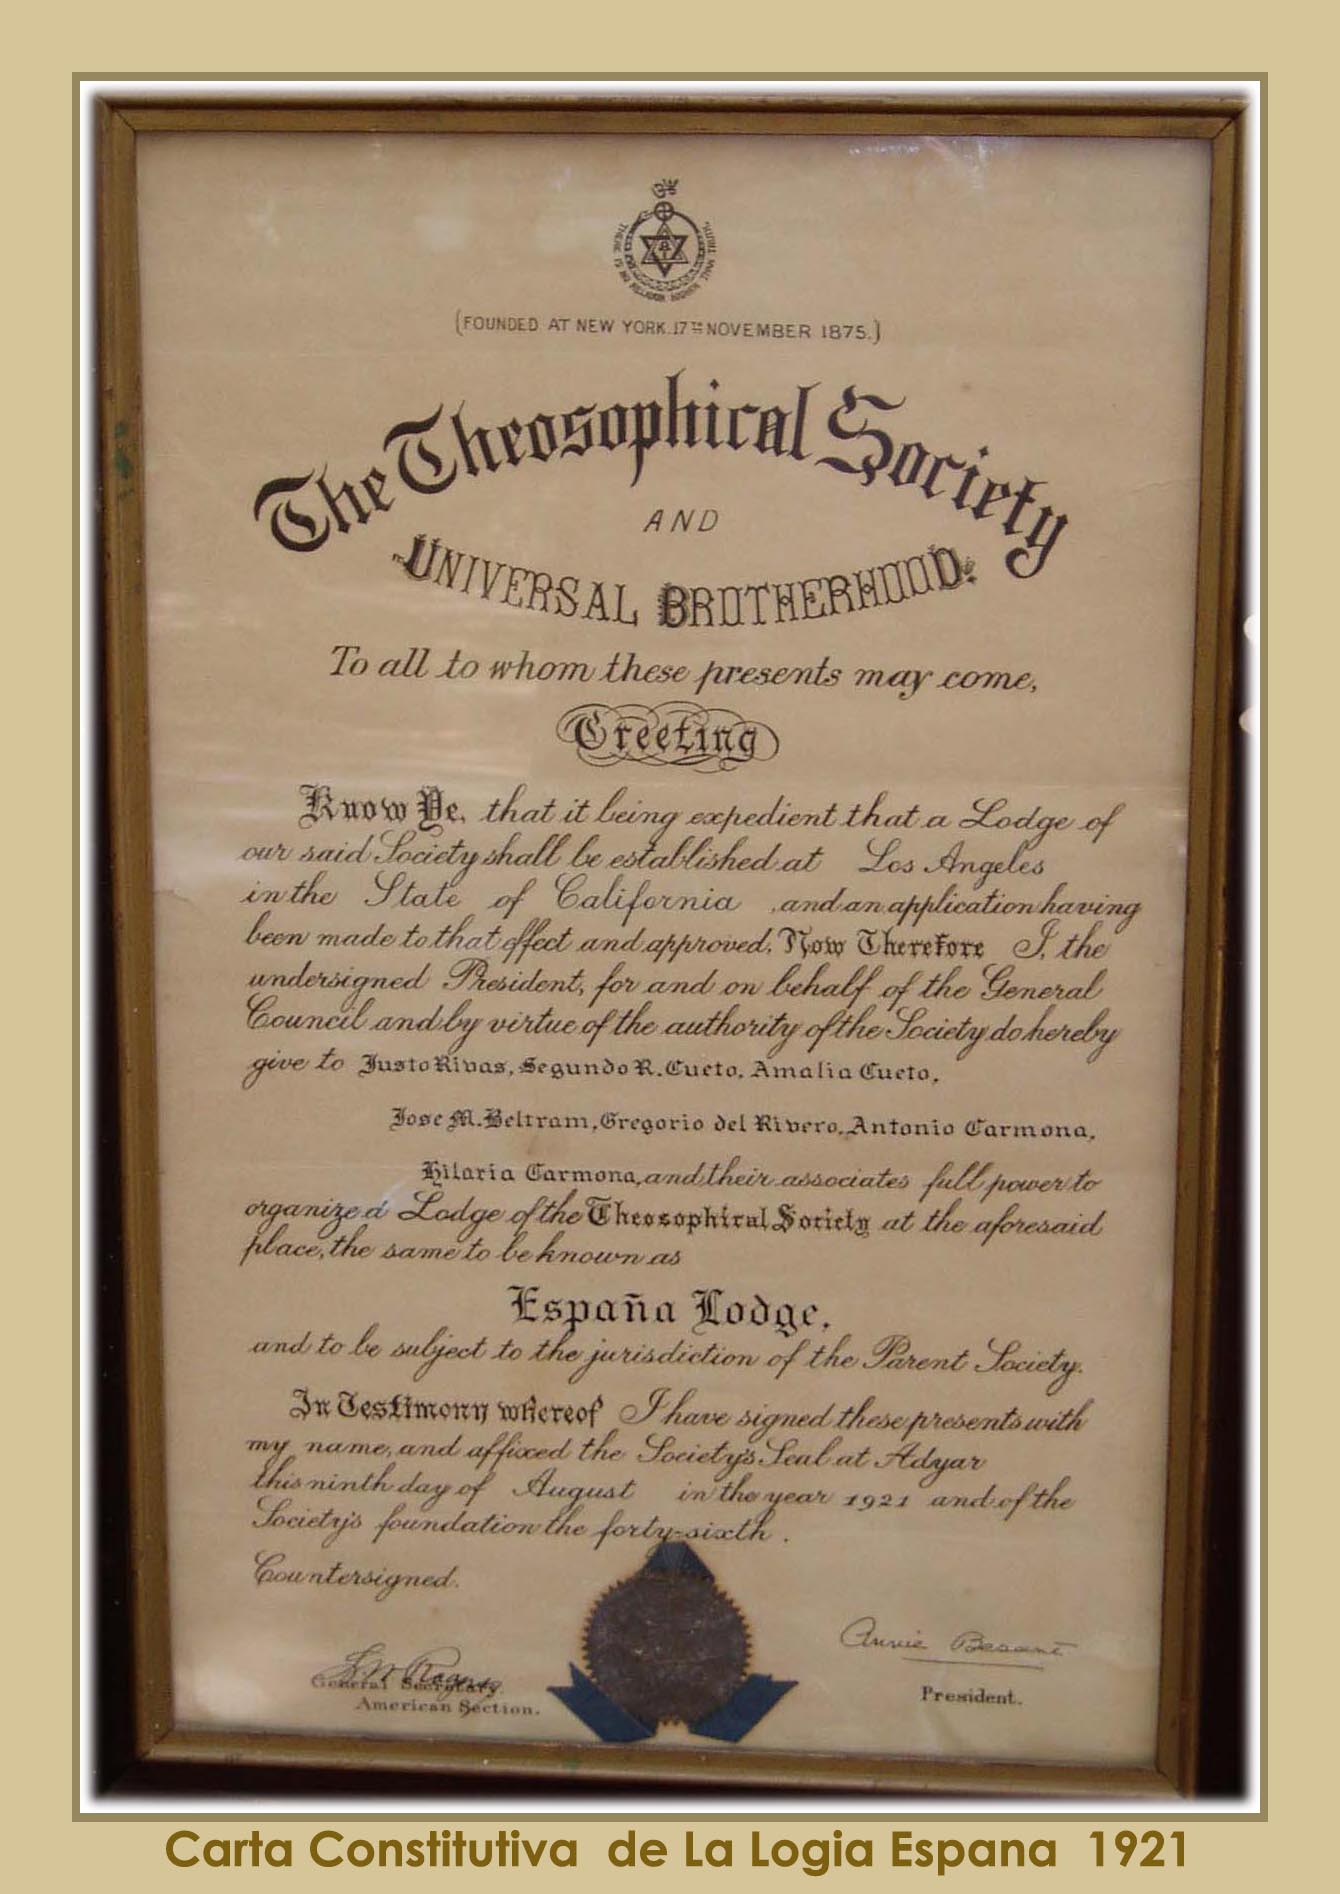 THERE IS NO RELIGION HIGHER THAN TRUTH
(FOUNDED AT NEW YORK. 17TH NOVEMBER 1875.)
The Theosophical Society
AND
"UNIVERSAL BROTHERHOOD."
To all to whom these presents may come,
Greeting
Know Ye, that it being expedient that a Lodge of
our said Society shall be established at Los Angeles
in the State of California , and an application having
been made to that effect and approved, Now Therefore I, the
undersigned President, for and on behalf of the General
Council and by virtue of the authority of the Society do hereby
give to Justo Rivas, Segundo R. Cueto, Amalia Cueto,
Jose M. Beltram, Gregorio del Rivero, Antonio Carmona,
Hilaria Carmona, and their associates full power to
organize a Lodge of the Theosophical Society at the aforesaid
place, the same to be known as
España Lodge,
and to be subject to the jurisdiction of the Parent Society.
In Testimony whereof I have signed these presents with
my name, and affixed the Society's Seal at Adyar
this ninth day of August in the year 1921 and of the
Society's foundation the forty-sixth .
Countersigned.
Annie Besant
L W Rogers
General Secretary
American Section.
President.
Carta Constitutiva de La Logia Espana 1921